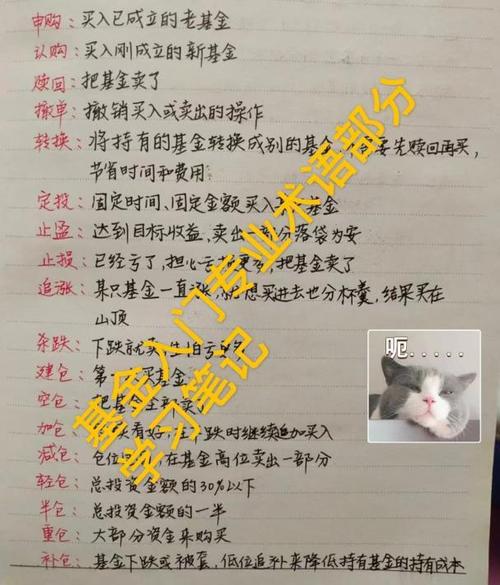 申购：买入已成立的老基金
认购：买入刚成立的新基金
赎回：把基金卖了
撤单：撤销买入或卖出的操作
转换：将持有的基金转换成别的基金，不需要先赎回再买，
节省时间和费用
定投：固定时间、固定金额买入基金
止盈：达到目标收益，卖出部分落袋为安
止损：已经亏了，担心亏更多，把基金卖了
追涨：某只基金一直涨，想买进去也分杯羹，结果买在
山顶
杀跌：下跌就卖，怕亏更多
建仓：第一买基金
空仓：把基金全部卖
加仓：看好，下跌时继续追加买入
减仓：仓位，在基金高位卖出一部分
轻仓：总投资金额的30%以下
半仓：总投资金额的一半
重仓：大部分资金来购买
补仓：基金下跌或被套，低位追补来降低持有基金的持有成本
基金入门专业术语部分
学习笔记
呃.....